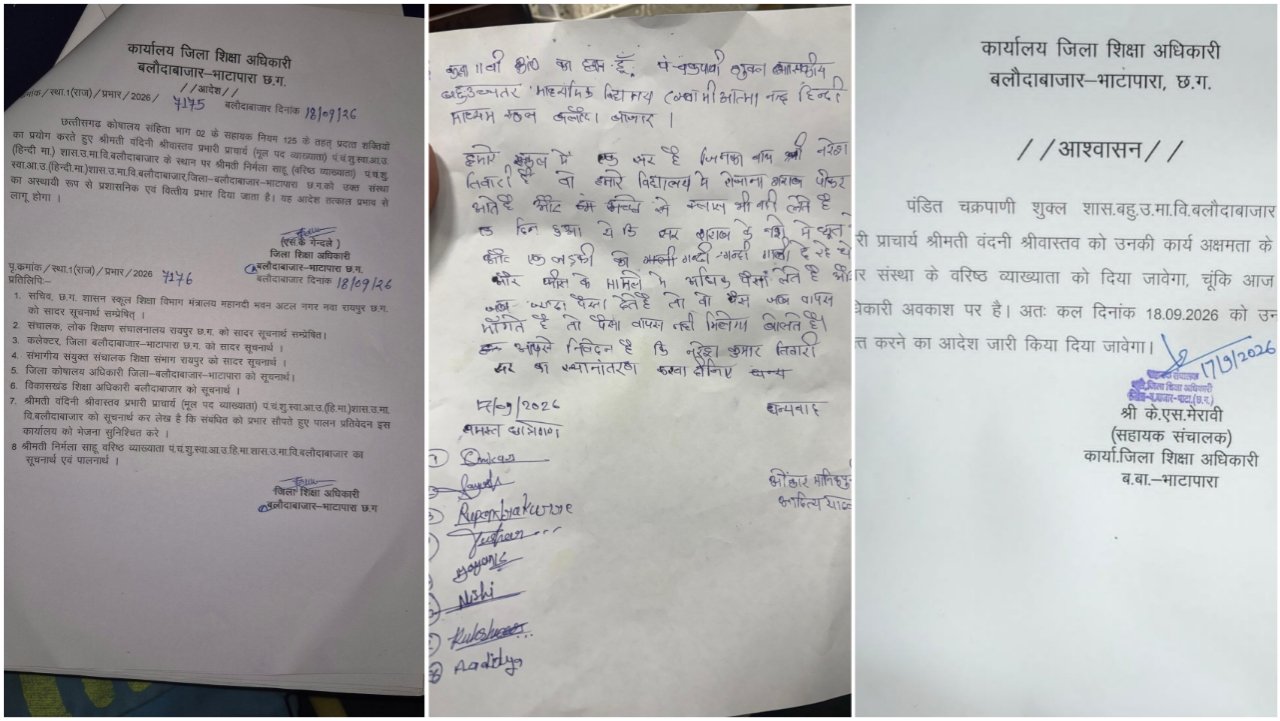 कार्यालय जिला शिक्षा अधिकारी
बलौदाबाजार–भाटापारा छ.ग.
//आदेश//
/स्था.1(राज)/प्रभार/2026/ 7175 बलौदाबाजार दिनांक 18/09/26
छत्तीसगढ़ कोषालय संहिता भाग 02 के सहायक नियम 125 के तहत् प्रदता शक्तियों
का प्रयोग करते हुए श्रीमती वंदिनी श्रीवास्तव प्रभारी प्राचार्य (मूल पद व्याख्याता) पं.चं.शु.स्वा.आ.उ.
(हिन्दी मा.) शास.उ.मा.वि.बलौदाबाजार के स्थान पर श्रीमती निर्मला साहू (वरिष्ठ व्याख्याता) पं.चं.शु.
स्वा.आ.उ.(हिन्दी.मा.)शास.उ.मा.वि.बलौदाबाजार,जिला–बलौदाबाजार–भाटापारा छ.ग.को उक्त संस्था
का अस्थायी रूप से प्रशासनिक एवं वित्तीय प्रभार दिया जाता है। यह आदेश तत्काल प्रभाव से
लागू होगा ।
(एस.के गेन्दले)
जिला शिक्षा अधिकारी
बलौदाबाजार–भाटापारा छ.ग.
पृ.कमांक/स्था.1(राज)/प्रभार/2026 7176 बलौदाबाजार दिनांक 18/09/26
प्रतिलिपिः–
1. सचिव, छ.ग. शासन स्कूल शिक्षा विभाग मंत्रालय महानदी भवन अटल नगर नवा रायपुर छ.ग.
को सादर सूचनार्थ सम्प्रेषित् ।
2. संचालक, लोक शिक्षण संचालनालय रायपुर छ.ग. को सादर सूचनार्थ सम्प्रेषित।
3. कलेक्टर, जिला बलौदाबाजार–भाटापारा छ.ग. को सादर सूचनार्थ ।
4. संभागीय संयुक्त संचालक शिक्षा संभाग रायपुर को सादर सूचनार्थ ।
5. जिला कोषालय अधिकारी जिला–बलौदाबाजार–भाटापारा को सूचनार्थ।
6. विकासखंड शिक्षा अधिकारी बलौदाबाजार को सूचनार्थ ।
7. श्रीमती वंदिनी श्रीवास्तव प्रभारी प्राचार्य (मूल पद व्याख्याता) पं.चं.शु.स्वा.आ.उ.(हि.मा.)शास.उ.मा.
वि.बलौदाबाजार को सूचनार्थ कर लेख है कि संबंधित को प्रभार सौपते हुए पालन प्रतिवेदन इस
कार्यालय को भेजना सुनिश्चित करे ।
8 श्रीमती निर्मला साहू वरिष्ठ व्याख्याता पं.चं.शु.स्वा.आ.उ.हि.मा.शास.उ.मा.वि.बलौदाबाजार का
सूचनार्थ एवं पालनार्थ ।
जिला शिक्षा अधिकारी
बलौदाबाजार–भाटापारा छ.ग
कक्षा 11वी का छात्र हूँ, पं चक्रपाणी शुक्ल शासकीय
माध्यमिक विद्यालय (स्वामी आत्मा नन्द हिन्दी
माध्यम बाजार ।
हमारे स्कूल में एक सर है जिनका नाम श्री नरेश
तिवारी है वो हमारे विद्यालय मे रोजाना शराब पीकर
आते है और हम क्लास भी नही लेते है
दिन हुआ ये कि सर शराब के नशे मे
एक लड़की को गन्दी गन्दी गाली दे रहे थे
और फीस के मामले मे अधिक पैसा लेते है और
पैसा देते है तो वो पैसे जब वापस
माँगते है तो पैसा वापस नही मिलेगा बोलते है।
आपसे निवेदन है कि नरेश कुमार तिवारी
सर का स्थानांतरण करवा दीजिए
/09/2026 धन्यवाद
समस्त छात्रगण
ओंकार
आदित्य
Nishi
Aaditya
कार्यालय जिला शिक्षा अधिकारी
बलौदाबाजार–भाटापारा, छ.ग.
//आश्वासन//
पंडित चक्रपाणी शुक्ल शास.बहु.उ.मा.वि.बलौदाबाजार
री प्राचार्य श्रीमती वंदनी श्रीवास्तव को उनकी कार्य अक्षमता के
र संस्था के वरिष्ठ व्याख्याता को दिया जावेगा, चूंकि आज
धिकारी अवकाश पर है। अतः कल दिनांक 18.09.2026 को उन
त्त करने का आदेश जारी किया दिया जावेगा।
17/9/2026
सहायक संचालक
श्री के.एस.मेरावी
(सहायक संचालक)
कार्या.जिला शिक्षा अधिकारी
ब.बा.–भाटापारा